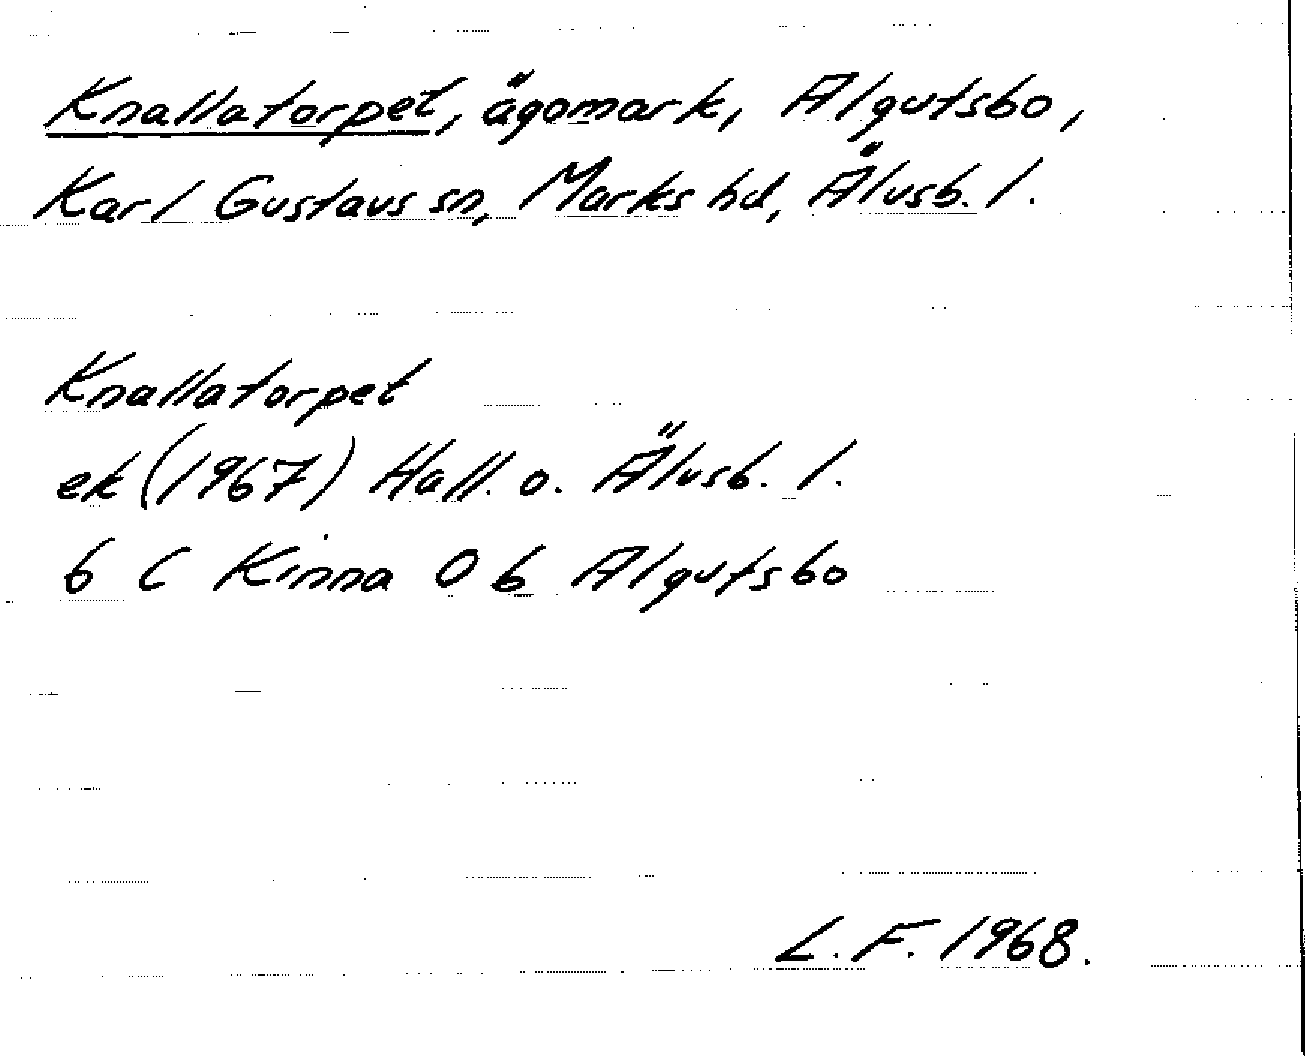 Knallatorpet, ägomark, Algutsbo,
Karl Gustavs sn, Marks hd, Älvsb. l.
Knallatorpet
ek (1967) Hall. o. Älvsb. l.
6 C Kinna 0 b Algutsbo
L. F. 1968.